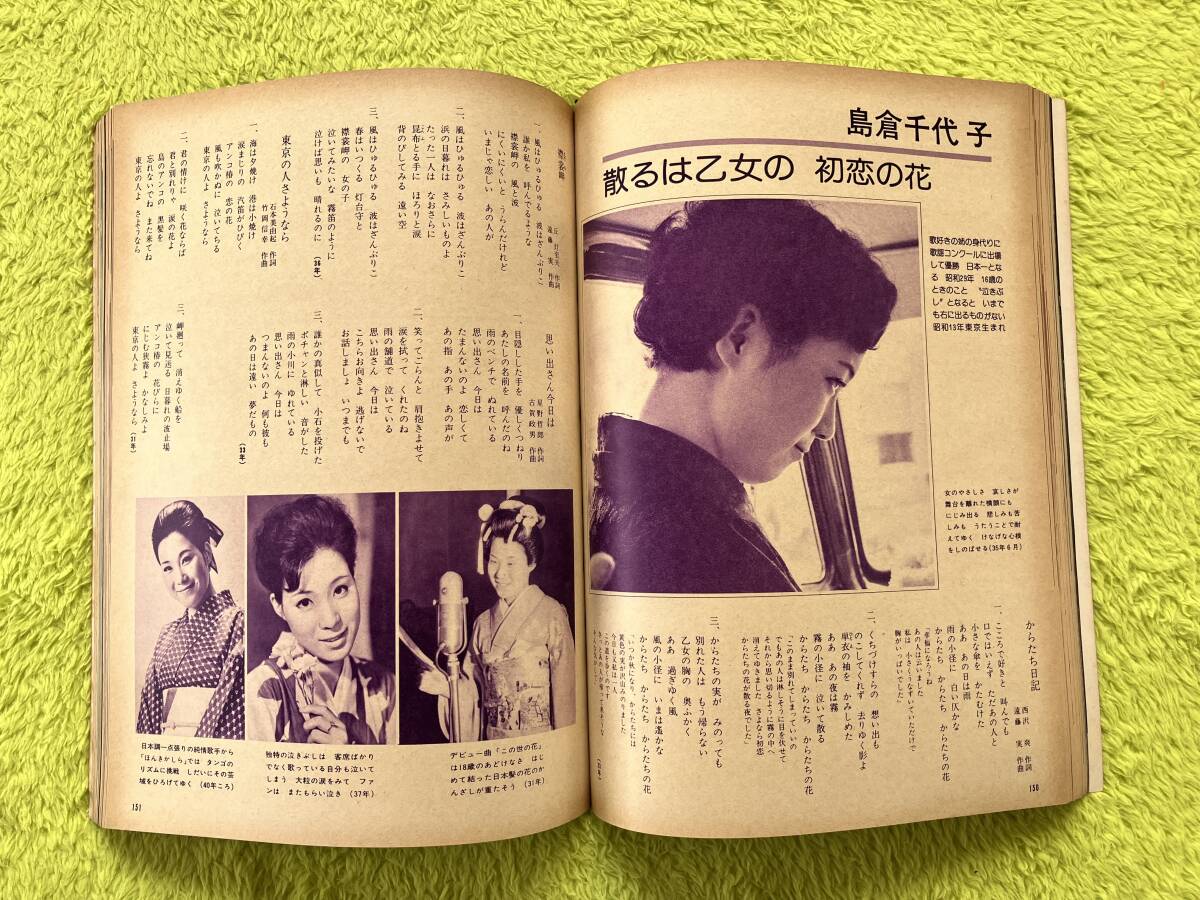 島倉千代子
散るは乙女の 初恋の花
歌好きの姉の身代りに
歌謡コンクールに出場
して優勝 日本一とな
る 昭和29年 16歳の
ときのこと “泣きぶ
し”となると いまで
も右に出るものがない
昭和13年東京生まれ
女のやさしさ 哀しさが
舞台を離れた横顔にも
にじみ出る 悲しみも苦
しみも うたうことで耐
えてゆく けなげな心根
をしのばせる(35年6月)
からたち日記
西沢 爽 作詞
遠藤 実 作曲
一、こころで好きと 叫んでも
口ではいえず ただあの人と
小さな傘を かたむけた
ああ あの日は雨
雨の小径に 白い仄かな
からたち からたち からたちの花
「幸福になろうね
あの人は云いました
私は 小さくうなずいただけで
胸がいっぱいでした」
二、くちづけすらの 想い出も
のこしてくれず 去りゆく影よ
単衣の袖を かみしめた
ああ あの夜は霧
霧の小径に 泣いて散る
からたち からたち からたちの花
「このまま別れてしまっていいの
でもあの人は淋しそうに目を伏せて
それから思い切るように霧の中へ
消えてゆきました さよなら初恋
からたちの花が散る夜でした」
三、からたちの実が みのっても
別れた人は もう帰らない
乙女の胸の 奥ふかく
ああ 過ぎゆく風
風の小径に いまは遥かな
からたち からたち からたちの花
「いつか秋になり、からたちには
黄色の実が沢山みのりました
今日も又私は一人
この道を歩くのです
(33年)
150
襟裳岬
丘 灯至夫 作詞
遠藤 実 作曲
一、風はひゅるひゅる 波はざんぶりこ
誰か私を 呼んでるような
襟裳岬の 風と波
にくいにくいと うらんだけれど
いまじゃ恋しい あの人が
二、風はひゅるひゅる 波はざんぶりこ
浜の日暮れは さみしいものよ
たった一人は なおさらに
昆布とる手に ほろりと涙
背のびしてみる 遠い空
三、風はひゅるひゅる 波はざんぶりこ
春はいつくる 灯台守と
襟裳岬の 女の子
泣いてみたいな 霧笛のように
泣けば思いも 晴れるのに
(36年)
東京の人さようなら
石本美由起 作詞
竹岡信幸 作曲
一、海は夕焼け 港は小焼け
涙まじりの 汽笛がひびく
アンコ椿の 恋の花
風も吹かぬに 泣いてちる
東京の人よ さようなら
二、君の情けに 咲く花ならば
君と別れりゃ 涙の花よ
島のアンコの 黒髪を
忘れないでね また来てね
東京の人よ さようなら
三、岬廻って 消えゆく船を
泣いて見送る 日暮れの波止場
アンコ椿の 花びらに
にじむ狭霧よ かなしみよ
東京の人よ さようなら
(31年)
思い出さん今日は
星野哲郎 作詞
古賀政男 作曲
一、目隠しした手を 優しくつねり
あたしの名前を 呼んだのね
雨のベンチで ぬれている
思い出さん 今日は
たまんないのよ 恋しくて
あの指 あの手 あの声が
二、笑ってごらんと 肩抱きよせて
涙を拭って くれたのね
雨の舗道で 泣いている
思い出さん 今日は
こちらお向きよ 逃げないで
お話しましょ いつまでも
三、誰かの真似して 小石を投げた
ポチャンと淋しい 音がした
雨の小川に ゆれている
思い出さん 今日は
つまんないのよ 何も彼も
あの日は遠い 夢だもの
(33年)
デビュー曲「この世の花」
は18歳のあどけなさ はじ
めて結った日本髪の花のか
んざしが重たそう (31年)
独特の泣きぶしは 客席ばかり
でなく歌っている自分も泣いて
しまう 大粒の涙をみて ファ
ンは またもらい泣き (37年)
日本調一点張りの純情歌手から
「ほんきかしら」では タンゴの
リズムに挑戦 しだいにその芸
域をひろげてゆく (40年ころ)
151